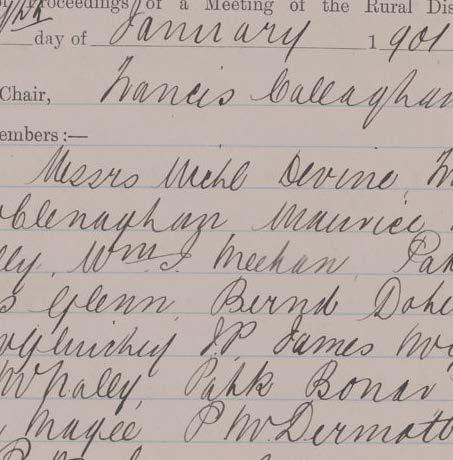 Proceedings of a Meeting of the Rural Dis
day of January 1901
Chair, Francis Callaghan
embers:—
Messrs Michl Devine,
McClenaghan Maurice
lly, Wm J. Meehan, Pat
s Glenn, Bernd Dohe
J.P. James McG
McNally, Patk Bonar
Magee P McDermott